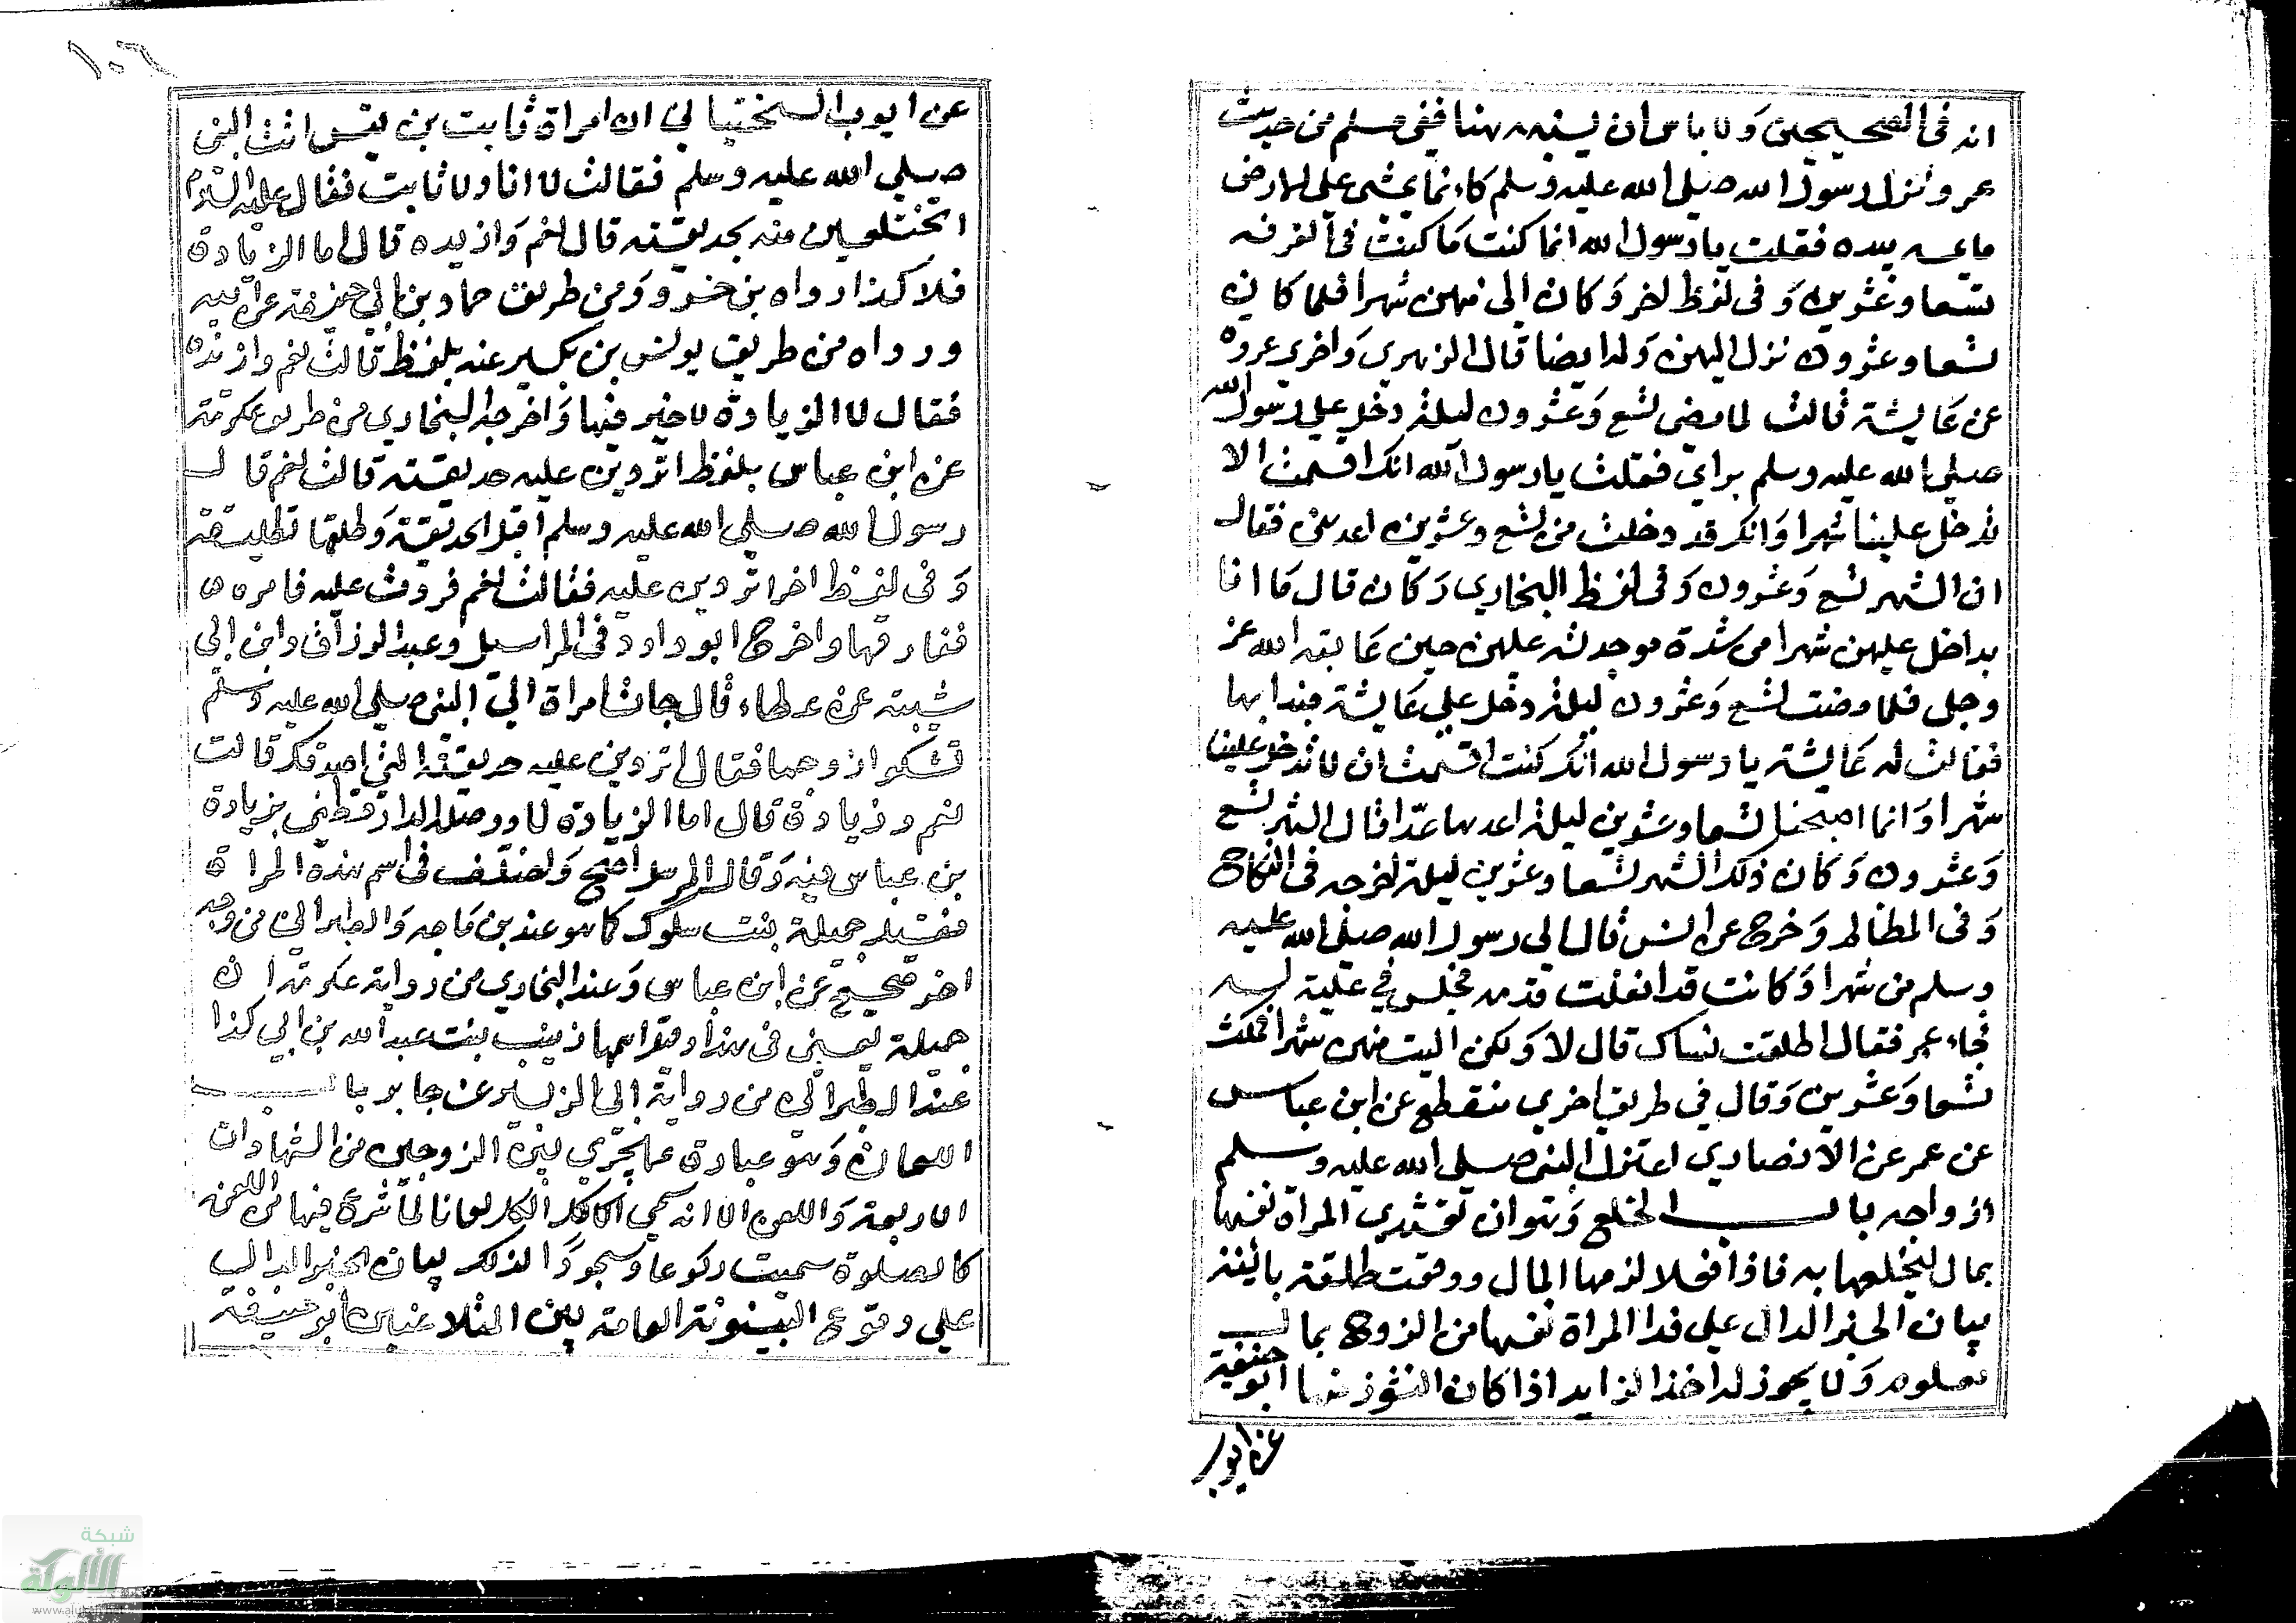 انه فى الصحيحين ولا باس ان ينبه هنا ففى مسلم من حديث
عمر ونزل رسول الله صلى الله عليه وسلم كانما يمشى على الارض
ما يمسه بيده فقلت يا رسول الله انما كنت فى الغرفه
تسعا وعشرين وفى لفظ اخر وكان الى منهن شهرا فلما كان
تسعا وعشرون نزل اليهن وله ايضا قال الزهري واخبرني عروة
عن عايشة قالت لما مضى تسع وعشرون ليلة دخل علي رسول الله
صلى الله عليه وسلم بدابي فقلت يا رسول الله انك اقسمت الا
تدخل علينا شهرا وانك قد دخلت من تسع وعشرين اعدهن فقال
ان الشهر تسع وعشرون وفى لفظ البخاري وكان قال ما انا
بداخل عليهن شهرا من شدة موجدته عليهن حين عاتبه الله عز
وجل فلما مضت تسع وعشرون ليلة دخل على عايشة فبدا بها
فقالت له عايشة يا رسول الله انك كنت اقسمت ان لا تدخل علينا
شهرا وانما اصبحنا تسعا وعشرين ليلة اعدها عدا قال الشهر تسع
وعشرون وكان ذلك الشهر تسعا وعشرين ليلة اخرجه فى النكاح
وفى المظالم وخرج عن انس قال الي رسول الله صلى الله عليه
وسلم من شهرا وكانت قد انفكت قدمه فجلس في علية له
فجاء عمر فقال اطلقت نساك قال لا ولكن اليت منهن شهرا فمكث
تسعا وعشرين وقال في طريق اخري منقطع عن ابن عباس
عن عمر عن الانصاري اعتزل النبي صلى الله عليه وسلم
ازواجه باب الخلع وهو ان تفتدي المراة نفسها
بمال ليخلعها به فاذا فعلا لزمها المال ووقعت طلقة باينة
بيان الخبر الدال على فدا المراة نفسها من الزوج بمال
معلوم ولا يجوز له اخذ الزايد اذا كان النشوز منها ابو حنيفة
عن ايوب
١٠٦
عن ايوب السختياني ان امراة ثابت بن قيس اتت النبي
صلى الله عليه وسلم فقالت لا انا ولا ثابت فقال عليه السلام
اتختلعين منه بحديقته قال نعم وازيده قال اما الزيادة
فلا كذا رواه بن خسرو ومن طريق حماد بن ابي حنيفة عن ابيه
ورواه من طريق يونس بن بكير عنه بلفظ قالت نعم وازيده
فقال لا الزيادة لا خير فيها واخرجه البخاري من طريق عكرمة
عن ابن عباس بلفظ اتردين عليه حديقته قالت نعم قال
رسول الله صلى الله عليه وسلم اقبل الحديقة وطلقها تطليقة
وفى لفظ اخر اتردين عليه فقالت نعم فردت عليه فامره
ففارقها واخرج ابو داود فى المراسيل وعبد الرزاق وابن ابي
شيبة عن عطاء قال جات امراة الى النبي صلى الله عليه وسلم
تشكو زوجها فقال اتردين عليه حديقته التي اصدقك قالت
نعم وزيادة قال اما الزيادة لا ووصله الدارقطني بزيادة
بن عباس فيه وقال المرسل اصح واختلف فى اسم هذه المراة
فقيل جميلة بنت سلول كما هو عند بن ماجه والطبراني من وجه
اخر صحيح عن ابن عباس وعند البخاري من رواية عكرمة ان
جميلة يعني فى هذا وقد اسمها زينب بنت عبد الله بن ابي كذا
عند الطبراني من رواية ابي الزبير عن جابر باب
اللعان وهو عبارة عما يجري بين الزوجين من الشهادات
الاربعة واللعن الا انه سمي الكل لعانا لما شرع فيها من اللعن
كالصلوة سميت ركوعا وسجودا لذلك بيان الخبر الدال
على وقوع البينونة العامة بين المتلاعنين ابو حنيفة
شبكة
الألوكة